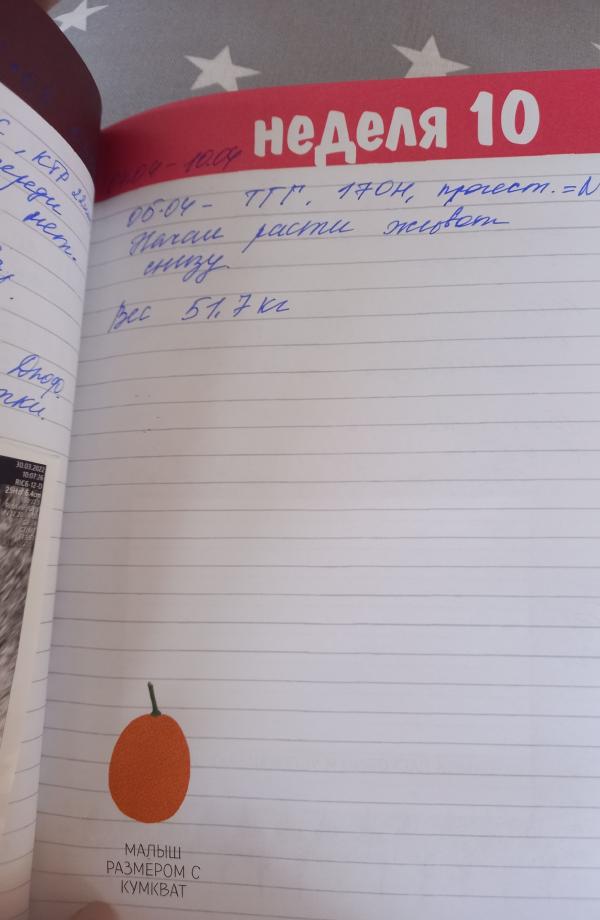 С, КТР
переди
нет.
30.03.2022
10:07:26
RIC6-12-D
неделя 10
04.04 - 10.04
06.04 - ТТГ, 17ОН, прогест. = N
Начал расти живот
снизу.
Вес 51,7 кг
МАЛЫШ
РАЗМЕРОМ С
КУМКВАТ